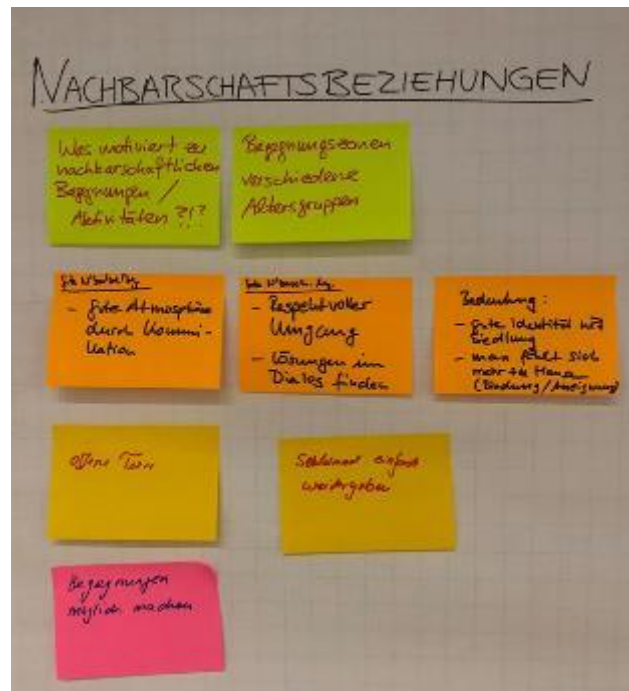 NACHBARSCHAFTSBEZIEHUNGEN
Was motiviert zu
nachbarschaftlichen
Begegnungen /
Aktivitäten ?!?
Begegnungszonen
verschiedene
Altersgruppen
- gute Atmosphäre
durch Kommuni-
kation
- Respektvoller
Umgang
- Lösungen im
Dialog finden
Bedeutung:
- gute Identität mit
Siedlung
- man fühlt sich
mehr zu Hause
(Bindung/Aneignung)
offene Türe
einfach
weitergeben
Begegnungen
möglich machen